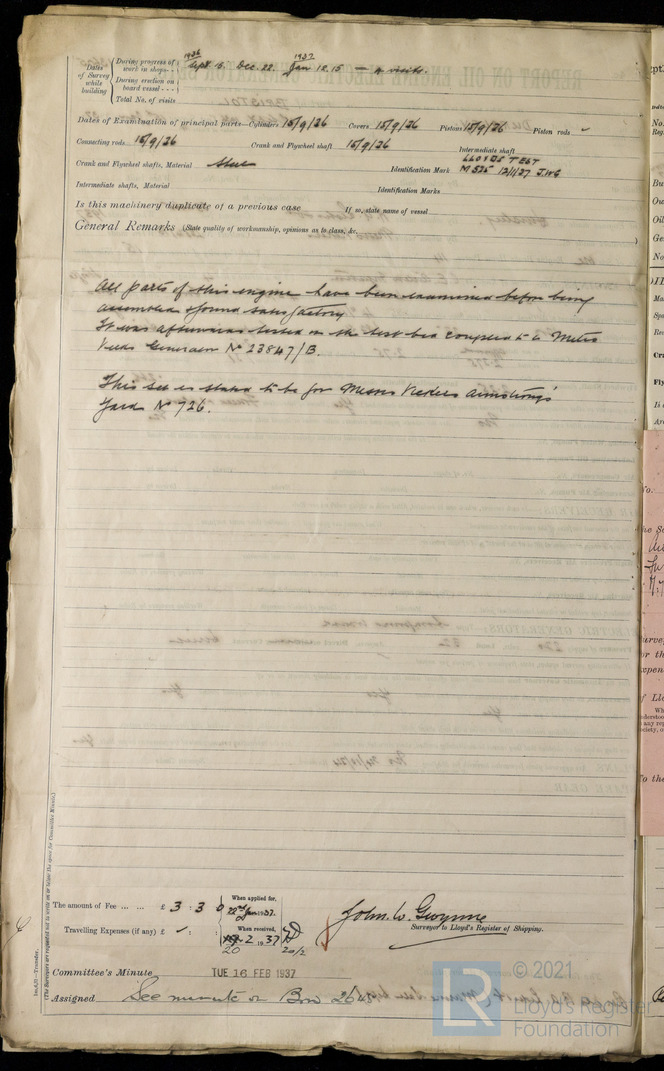 Dates of Survey while building
During progress of work in shops - - 1936 Sept 16. Dec. 22. 1937 Jan 12.15 — 4 visits.
During erection on board vessel - - -
Total No. of visits
Dates of Examination of principal parts—Cylinders 15/9/36 Covers 15/9/36 Pistons 15/9/36 Piston rods -
Connecting rods 15/9/36 Crank and Flywheel shaft 15/9/36 Intermediate shaft
Crank and Flywheel shafts, Material Steel Identification Mark LLOYDS TEST
M 525 12/1/37 J.W.G
Intermediate shafts, Material Identification Marks
Is this machinery duplicate of a previous case If so, state name of vessel
General Remarks (State quality of workmanship, opinions as to class, &c.
All parts of this engine have been examined before being
assembled & found satisfactory
It was afterwards tested on the test bed coupled to a Metro
Vicks Generator No 23847/B.
This set is stated to be for Messrs Vickers Armstrong's
Yard No 726.
The amount of Fee ... ... £ 3 : 3 : 0 When applied for, 22nd Jan 1937.
Travelling Expenses (if any) £ - : : When received, 2 1937 20/2
John. W. Gwynne
Surveyor to Lloyd's Register of Shipping.
Committee's Minute TUE 16 FEB 1937
Assigned See minute on Bow
(The Surveyors are requested not to write on or below the space for Committee Minute.)
© 2021
Lloyd's Register
Foundation
LR